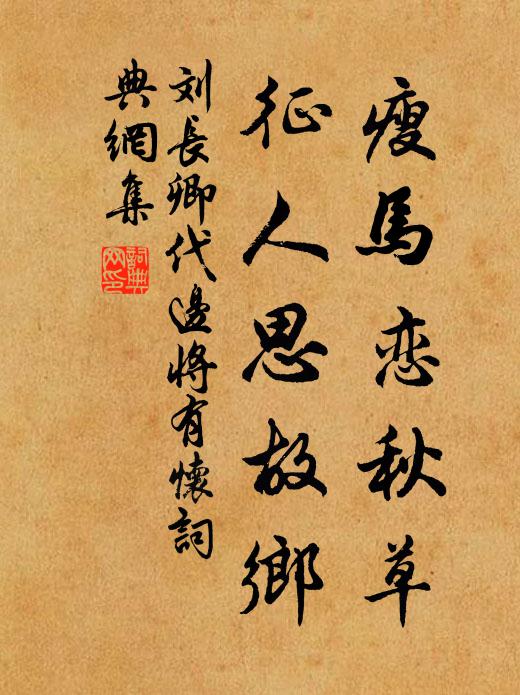 瘦馬恋秋草
征人思故鄉
刘長卿代邊將有懷詞
典網集
詞典網印